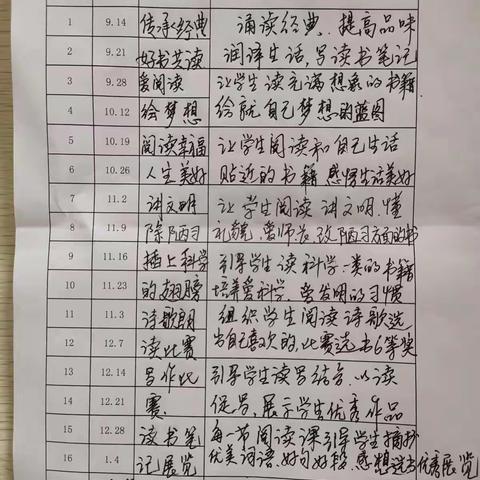 1 9.14 传承经典 诵读经典、提高品味
2 9.21 好书共读 润泽生活,写读书笔记
3 9.28 爱阅读 让学生读充满想象的书籍
4 10.12 绘梦想 绘就自己梦想的蓝图
5 10.19 阅读幸福 让学生阅读和自己生活
6 10.26 人生美好 贴近的书籍,感悟生活美好
7 11.2 讲文明 让学生阅读讲文明、懂
8 11.9 除陋习 礼貌、尊师长、改陋习方面的书
9 11.16 插上科学 引导学生读科学一类的书籍
10 11.23 的翅膀 培养爱科学,尝发明的习惯
11 11.3 诗歌朗 组织学生阅读诗歌选
12 12.7 读比赛 出自己喜欢的,比赛选出6等奖
13 12.14 写作比 引导学生读写结合,以读
14 12.21 赛 促写,展示学生优秀作品
15 12.28 读书笔 每一节阅读课引导学生摘抄
16 1.4 记展览 优美词语、好句好段、感想选出优秀展览